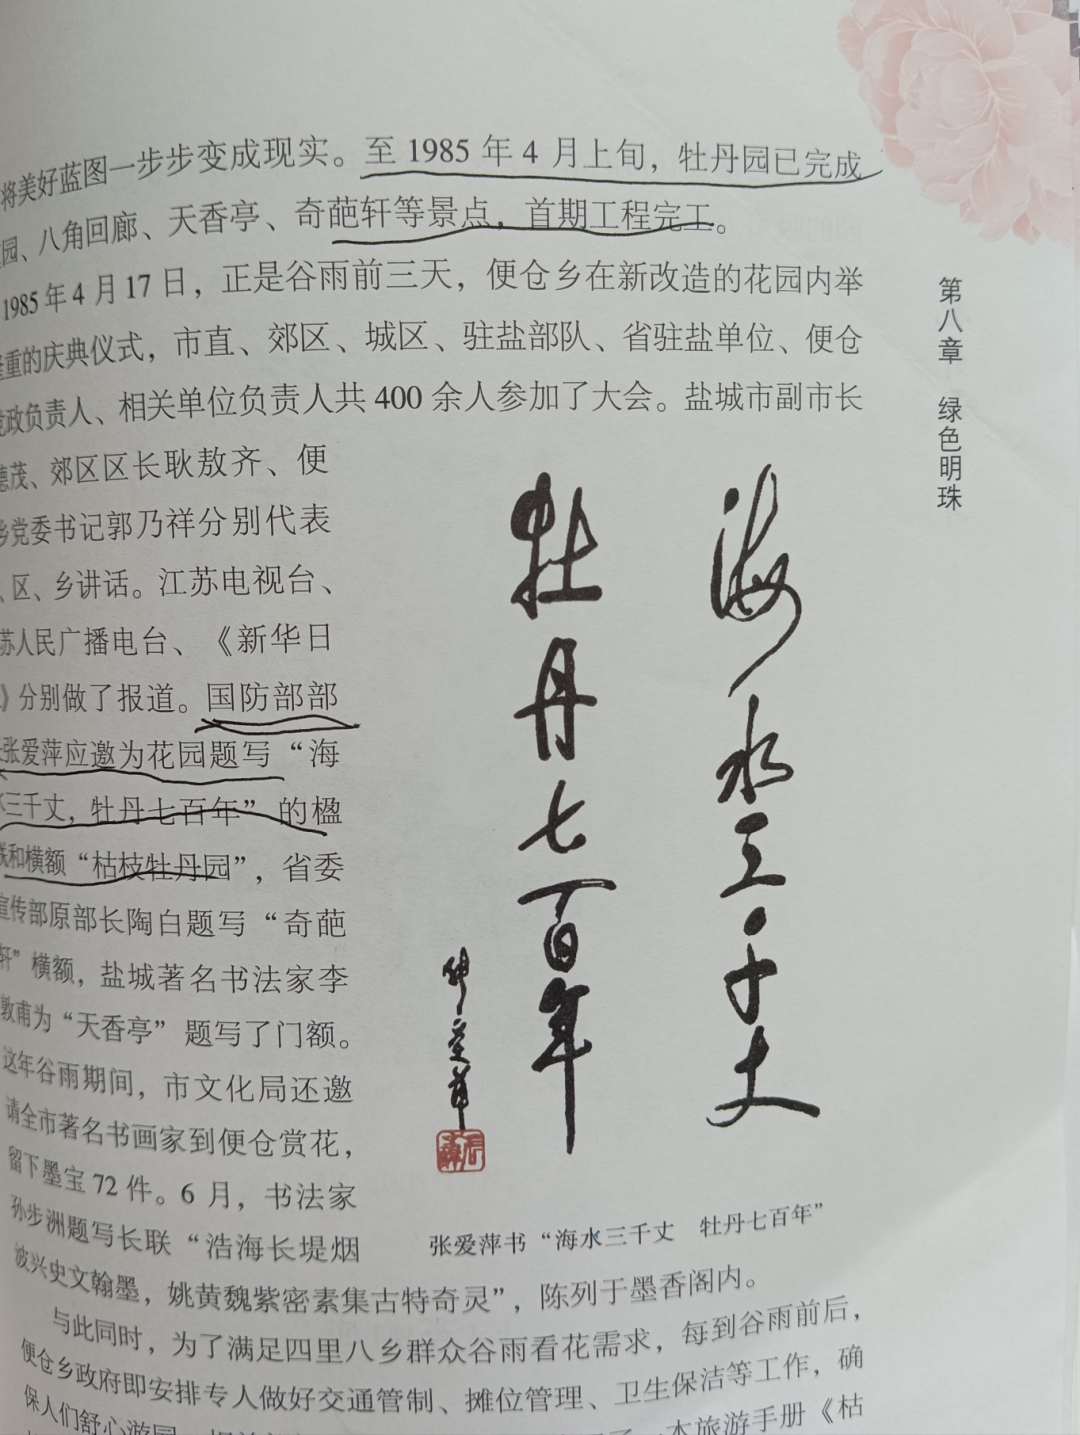 将美好蓝图一步步变成现实。至1985年4月上旬，牡丹园已完成
园、八角回廊、天香亭、奇葩轩等景点，首期工程完工。
1985年4月17日，正是谷雨前三天，便仓乡在新改造的花园内举
隆重的庆典仪式，市直、郊区、城区、驻盐部队、省驻盐单位、便仓
党政负责人、相关单位负责人共400余人参加了大会。盐城市副市长
德茂、郊区区长耿敖齐、便
乡党委书记郭乃祥分别代表
、区、乡讲话。江苏电视台、
苏人民广播电台、《新华日
》分别做了报道。国防部部
长张爱萍应邀为花园题写“海
水三千丈，牡丹七百年”的楹
联和横额“枯枝牡丹园”，省委
宣传部原部长陶白题写“奇葩
轩”横额，盐城著名书法家李
敦甫为“天香亭”题写了门额。
这年谷雨期间，市文化局还邀
请全市著名书画家到便仓赏花，
留下墨宝72件。6月，书法家
孙步洲题写长联“浩海长堤烟
波兴史文翰墨，姚黄魏紫密素集古特奇灵”，陈列于墨香阁内。
与此同时，为了满足四里八乡群众谷雨看花需求，每到谷雨前后，
便仓乡政府即安排专人做好交通管制、摊位管理、卫生保洁等工作，确
保人们舒心游园
一本旅游手册《枯
海水三千丈
牡丹七百年
张爱萍书“海水三千丈 牡丹七百年”
第八章 绿色明珠